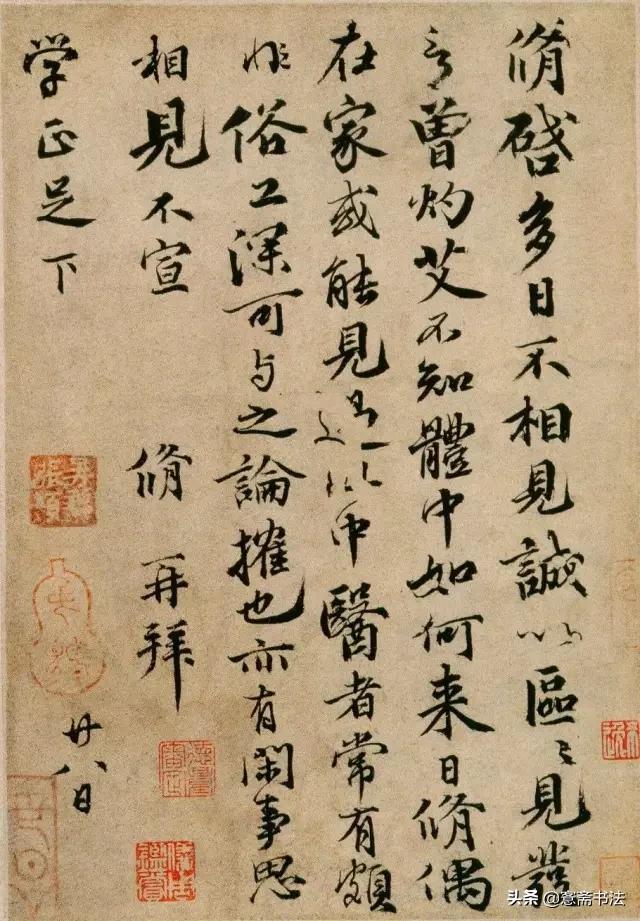 脩啓多日不相見誠以區〻見發
言曾灼艾不知體中如何来日脩偶
在家或能見過此中醫者常有頗
非俗工深可与之論搉也亦有閑事思
相見不宣 脩再拜
学正足下 廿八日
头条 @憙斋书法